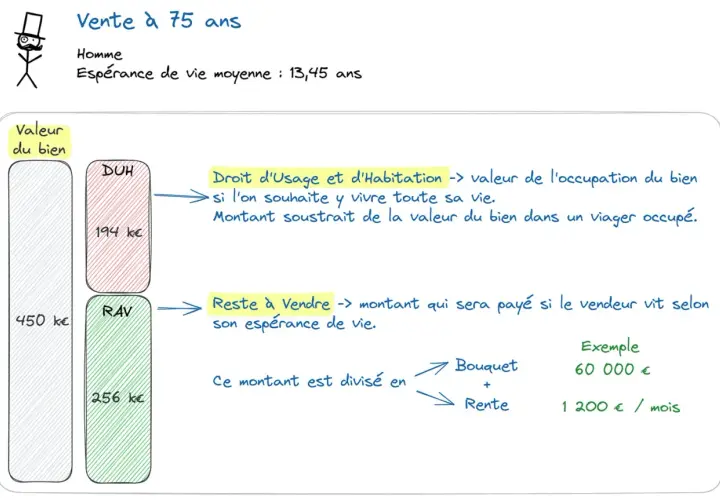 Vente à 75 ans
Homme
Espérance de vie moyenne : 13,45 ans
Valeur
du bien
450 k€
DUH
194 k€
Droit d'Usage et d'Habitation -> valeur de l'occupation du bien
si l'on souhaite y vivre toute sa vie.
Montant soustrait de la valeur du bien dans un viager occupé.
RAV
256 k€
Reste à Vendre -> montant qui sera payé si le vendeur vit selon
son espérance de vie.
Ce montant est divisé en
Bouquet
+
Rente
Exemple
60 000 €
1 200 € / mois